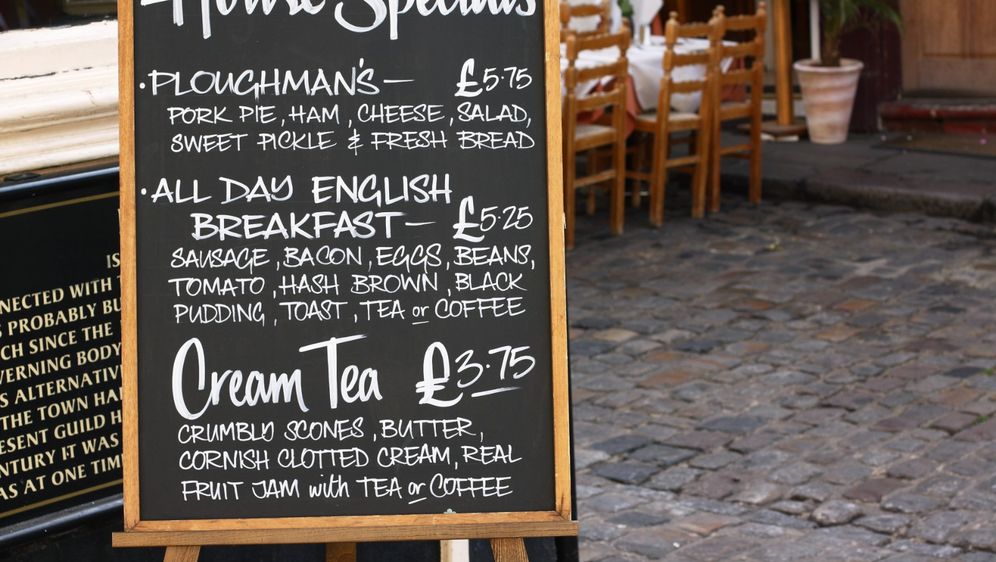 House Specials
•PLOUGHMAN'S — £5·75
PORK PIE, HAM, CHEESE, SALAD,
SWEET PICKLE & FRESH BREAD
•ALL DAY ENGLISH
BREAKFAST — £5·25
SAUSAGE, BACON, EGGS, BEANS,
TOMATO, HASH BROWN, BLACK
PUDDING, TOAST, TEA or COFFEE
Cream Tea £3·75
CRUMBLD SCONES, BUTTER,
CORNISH CLOTTED CREAM, REAL
FRUIT JAM with TEA or COFFEE
IS
NECTED WITH
PROBABLY BU
CH SINCE THE
VERNING BODY
S ALTERNATIV
THE TOWN HA
ESENT GUILD H
NTURY IT WAS
AS AT ONE TIM